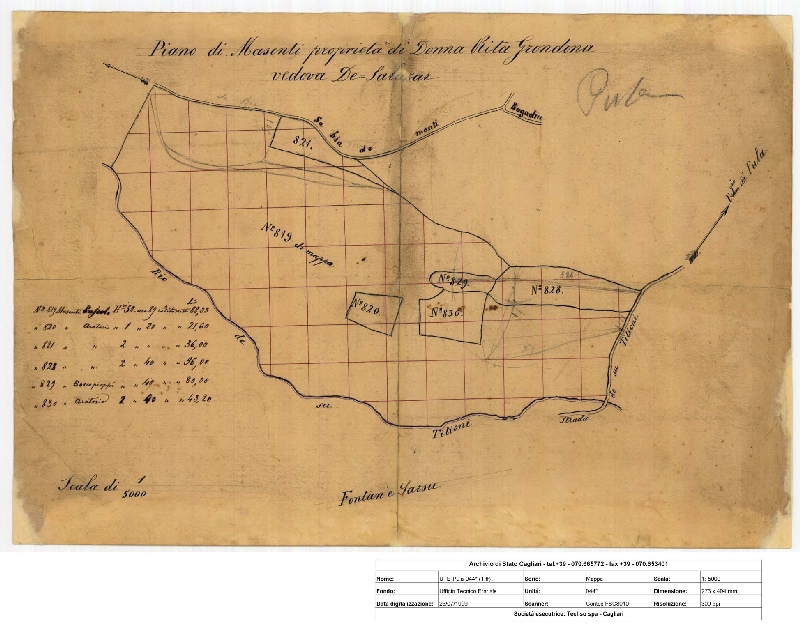 Piano di Masenti proprietà di Donna Rita Grondona
vedova De-Salazar
Pula
Sa bia de monti
821.
Nº 819 di mappa
Nº 820.
Nº 829.
Nº 828.
Nº 830.
Rio de su Tilioni
Strada de su Tilioni
di Pula
Nº 819 Masenti
" 820 " Aratorio " 1 " 20 " " " 21,60
" 821 " " 2 " " " 36,00
" 828 " " 2 " 40 " "
" 829 " " 40 " " 80,00
" 830 " Aratorio 2 " 40 " " 43,20
Scala di 1/5000
Fontan'e Sarsu
Archivio di Stato Cagliari - tel.+39 - 070.665772 - fax +39 - 070.653401
Nome: Serie: Mappe Scala: 1: 5000
Fondo: Ufficio Tecnico Erariale Unità: 044* Dimensione: 273 x 404 mm
Data digitalizzazione: Scanner: Risoluzione: 300 dpi
Società esecutrice: Tecliso spa - Cagliari